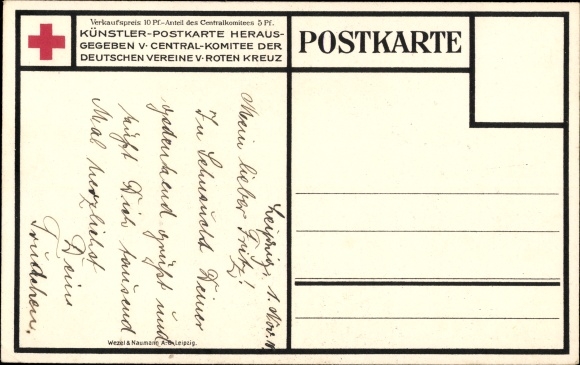 Verkaufspreis 10 Pf.-Anteil des Centralkomitees 5 Pf.
KÜNSTLER-POSTKARTE HERAUS-
GEGEBEN V. CENTRAL-KOMITEE DER
DEUTSCHEN VEREINE V. ROTEN KREUZ
POSTKARTE
Leipzig, 1. Nov.
Mein lieber Fritz!
In Sehnsucht Deiner
gedenkend grüßt und
küßt Dich tausend
Mal herzlichst
Deine
Trudchen.
Wezel & Naumann A.-G. Leipzig.